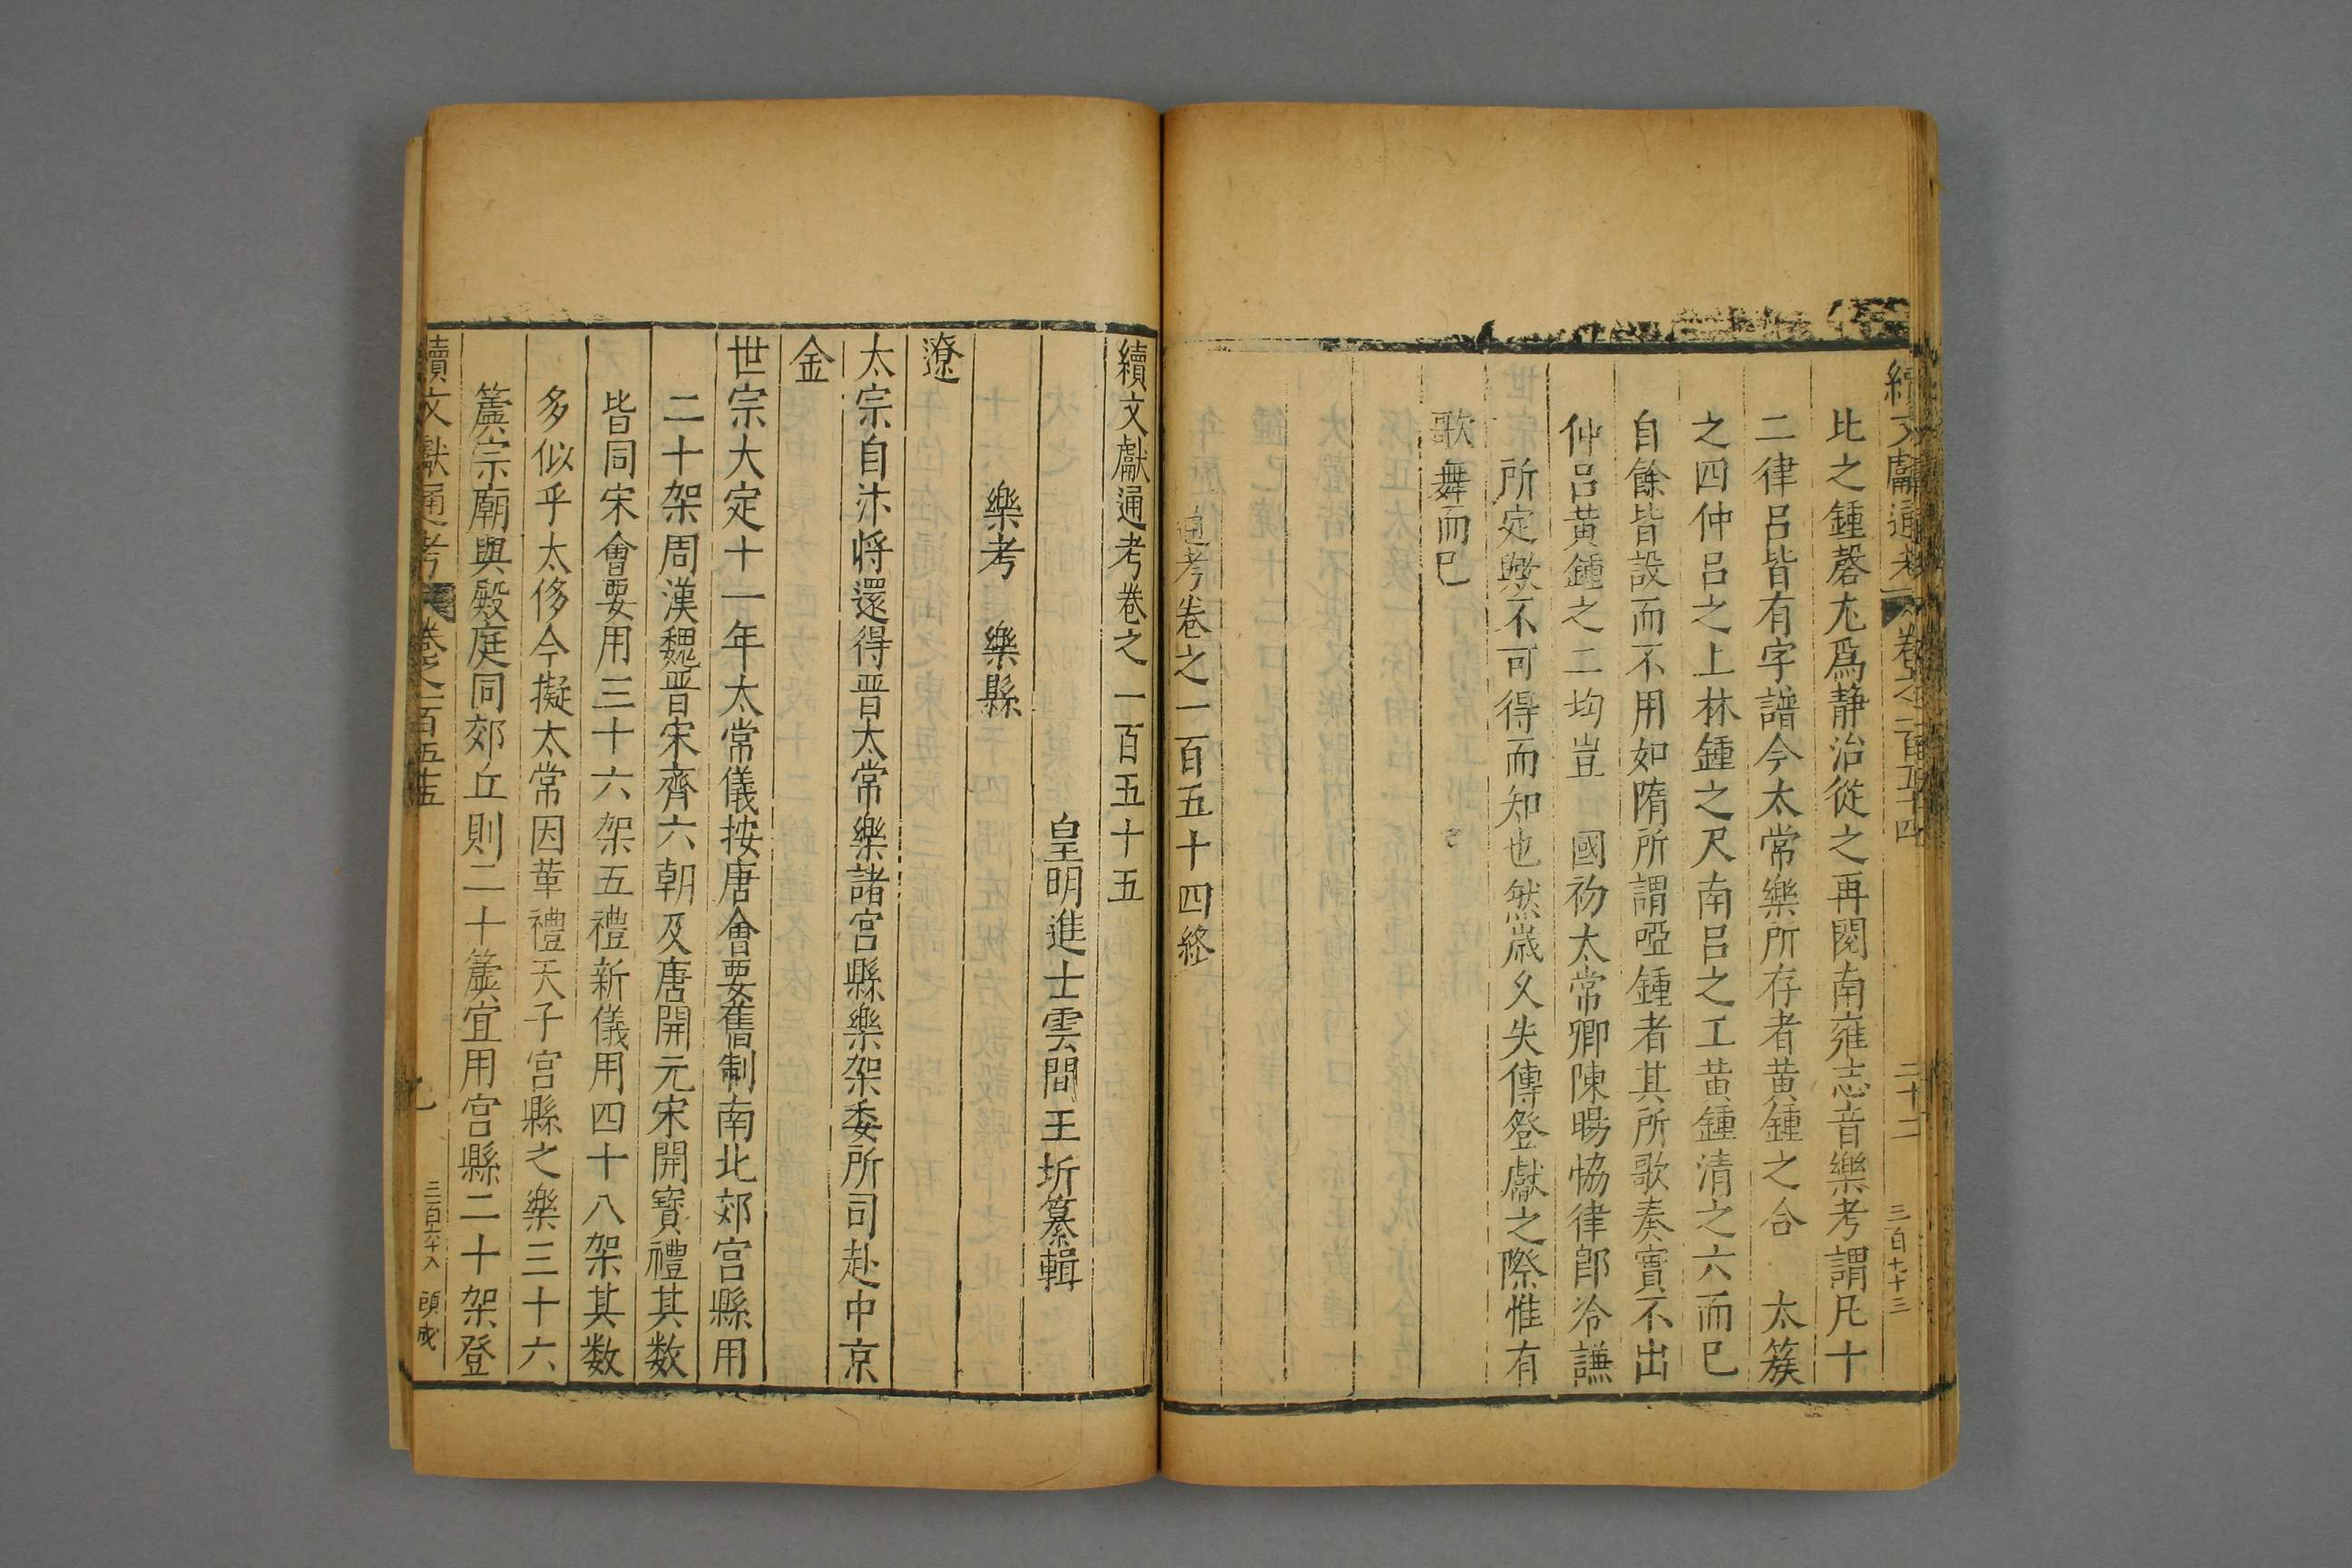 續文獻通考 卷之一百五十四 二十二 三百七十三
比之鍾磬尤爲静治從之再閱南雍志音樂考謂凡十
二律呂皆有字譜今太常樂所存者黄鍾之合 太簇
之四仲呂之上林鍾之尺南呂之工黄鍾清之六而已
自餘皆設而不用如隋所謂啞鍾者其所歌奏實不出
仲呂黄鍾之二均豈 國初太常卿陳暘恊律郎冷謙
所定歟不可得而知也然歳久失傳登獻之際惟有
歌舞而已
通考卷之一百五十四終
續文獻通考卷之一百五十五
皇明進士雲間王圻纂輯
樂考 樂縣
遼
太宗自汴将還得晋太常樂諸宫縣樂架委所司赴中京
金
世宗大定十一年太常儀按唐會要舊制南北郊宫縣用
二十架周漢魏晋宋齊六朝及唐開元宋開寳禮其数
皆同宋會要用三十六架五禮新儀用四十八架其数
多似乎太侈今擬太常因革禮天子宫縣之樂三十六
簴宗廟與殿庭同郊丘則二十簴宜用宫縣二十架登
續文獻通考 卷之一百五十五 三百六十八